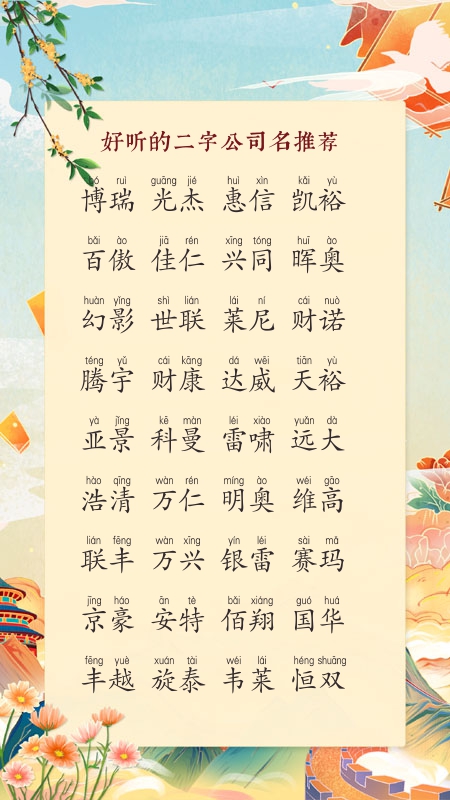 好听的二字公司名推荐
bó ruì guāng jié huì xìn kǎi yù
博瑞 光杰 惠信 凯裕
bǎi ào jiā rén xīng tóng huī ào
百傲 佳仁 兴同 晖奥
huàn yǐng shì lián lái ní cái nuò
幻影 世联 莱尼 财诺
téng yǔ cái kāng dá wēi tiān yù
腾宇 财康 达威 天裕
yà jǐng kē màn léi xiào yuǎn dà
亚景 科曼 雷啸 远大
hào qīng wàn rén míng ào wéi gāo
浩清 万仁 明奥 维高
lián fēng wàn xīng yín léi sài mǎ
联丰 万兴 银雷 赛玛
jīng háo ān tè bǎi xiáng guó huá
京豪 安特 佰翔 国华
fēng yuè xuán tài wéi lái héng shuāng
丰越 旋泰 韦莱 恒双